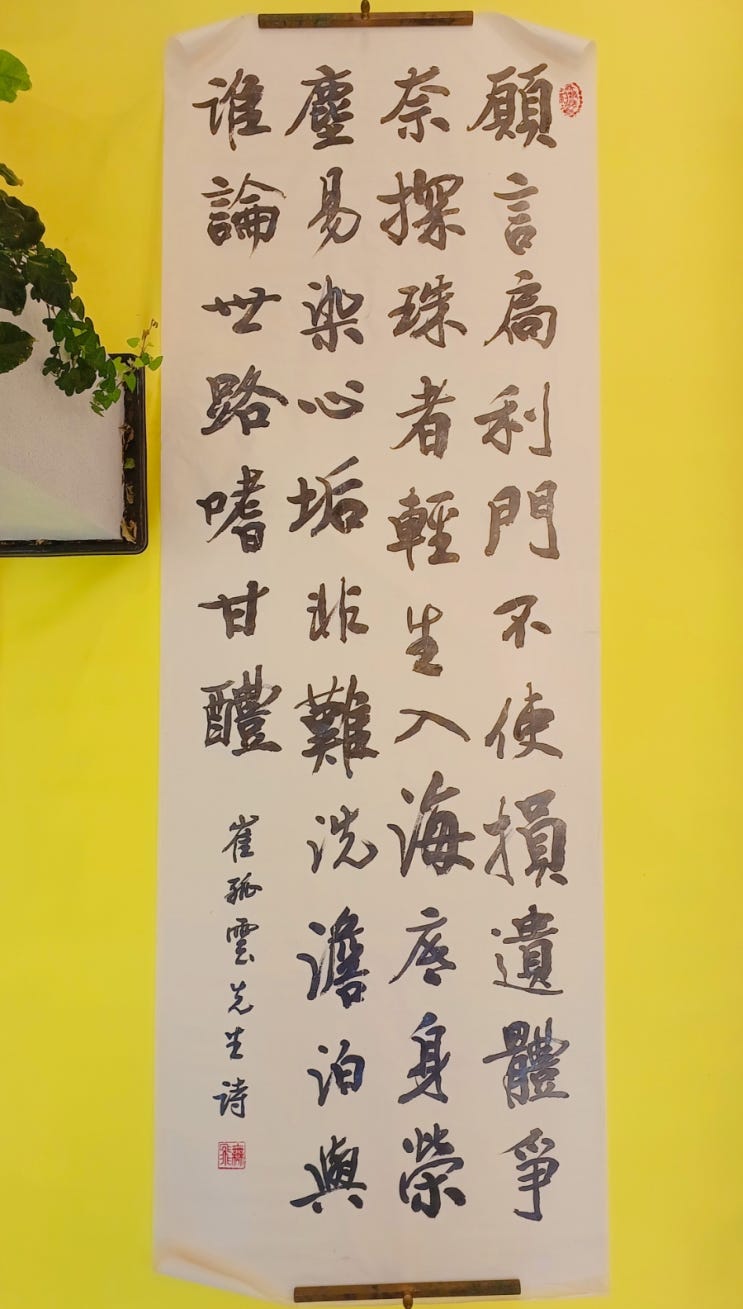 願言扃利門不使損遺體爭
奈探珠者輕生入海底身榮
塵易染心垢非難洗澹泊與
誰論世路嗜甘醴
崔孤雲先生詩